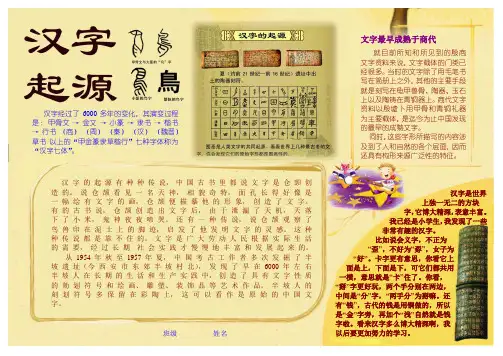 汉字
起源
汉字经过了 6000 多年的变化，其演变过程
是：甲骨文 → 金文 → 小篆 → 隶书 → 楷书
→ 行书 （商） （周） （秦） （汉） （魏晋）
草书 以上的“甲金篆隶草楷行”七种字体称为
“汉字七体”。
汉字的起源
文字最早成熟于商代
就目前所知和所见到的殷商
文字资料来说，文字载体的门类已
经很多。当时的文字除了用毛笔书
写在简册上之外，其他的主要手段
就是刻写在龟甲兽骨、陶器、玉石
上以及陶铸在青铜器上。商代文字
资料以殷墟卜用甲骨和青铜礼器
为主要载体，是迄今为止中国发现
的最早的成熟文字。
同时，这些字形所描写的内容涉
及到了人和自然的各个层面，因而
还具有构形来源广泛的特征。
汉字的起源有种种传说，中国古书里都说文字是仓颉创
造的。说仓颉看见一名天神，相貌奇特，面孔长得好像是
一幅绘有文字的画，仓颉便描摹他的形象，创造了文字。
有的古书说，仓颉创造出文字后，由于泄漏了天机，天落
下了小米，鬼神夜夜啼哭。还有一种传说，说仓颉观察了
鸟兽印在泥土上的脚迹，启发了他发明文字的灵感。这种
种传说都是靠不住的。文字是广大劳动人民根据实际生活
的需要，经过长期社会实践才慢慢地丰富和发展起来的。
从 1954 年秋至 1957 年夏，中国考古工作者多次发掘了半
坡遗址(今西安市东郊半坡村北)，发现了早在 6000 年左右
半坡人在长期的生活和生产实践中，创造了具有文字性质
的刻划符号和绘画、雕塑、装饰品等艺术作品。半坡人的
刻划符号多保留在彩陶上，这可以看作是原始的中国文
字。
汉字是世界
上独一无二的方块
字，它博大精深，表意丰富。
我已经是小学生，我发现了一些
非常有趣的汉字。
比如说会文字，不正为
“歪”，不好为“孬”，女子为
“好”。卡字更有意思，你看它上
面是上，下面是下，可它们都共用
一横，意思就是“卡”住了。你看，
“掰”字更好玩，两个手分别在两边，
中间是“分”字，“两手分”为掰嘛。还
有“钱”，古代的钱是用铜做的，所以
是“金”字旁，再加个“戋”自然就是钱
字啦。看来汉字多么博大精深啊，我
以后要更加努力的学习。
班级 姓名